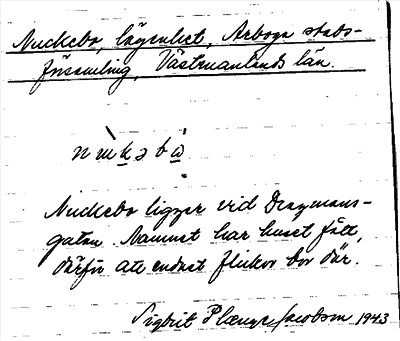 Nuckebo, lägenhet, Arboga stads-
församling, Västmanlands län.
Nuckebo ligger vid Dragmans-
gatan. Namnet har huset fått,
därför att endast flickor bor där.
Sigbrit Jacobson 1943